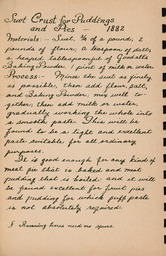 Suet Crust for Puddings
and Pies — 1882
Materials — Suet, ¾ of a pound; 2
pounds of flour; a teaspoon of salt;
a heaped tablespoonful of Goodall's
Baking Powder; 1 pint of milk or water
Process — Mince the suet as finely
as possible, then add flour, salt,
and Baking Powder; mix well to-
gether; then add milk or water,
gradually working the whole into
a smooth paste. This will be
found to be a light and excellent
paste suitable for all ordinary
purposes.
It is good enough for any kind of
meat pie that is baked and meat
pudding that is boiled and it will
be found excellent for fruit pies
and pudding for which puff paste
is not absolutely required.